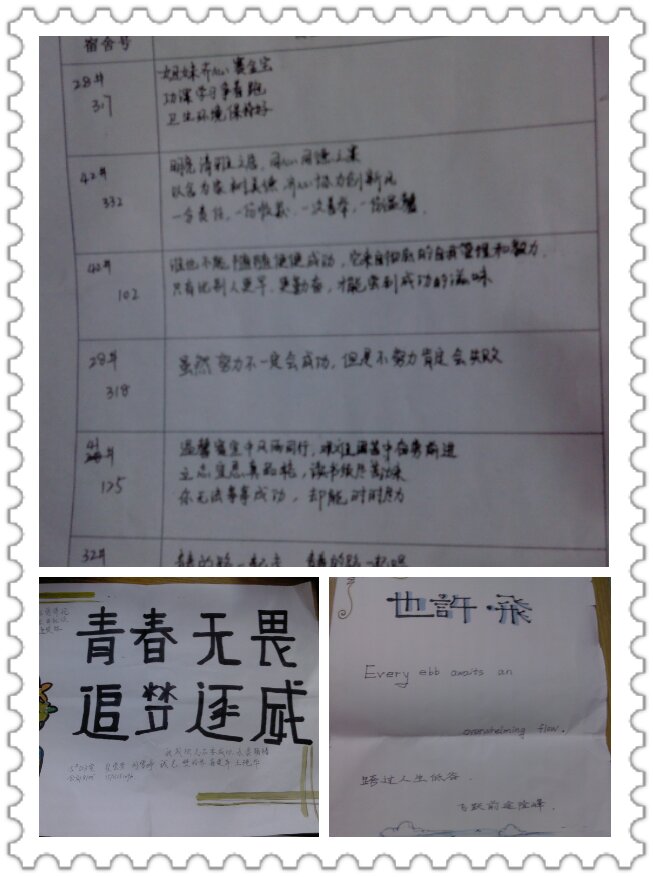 宿舍号
28# 317
姐妹齐心赛金宝
功课学习争着跑
卫生环境保持好
42# 332
明亮清雅之居,同心同德之寨
齐心协力创新风
一分责任,一份收获,一次善举,一份温馨.
42# 102
谁也不能随随便便成功,它来自彻底的自我管理和毅力.
只有比别人更早、更勤奋,才能尝到成功的滋味
28# 318
虽然努力不一定会成功,但是不努力肯定会失败
41# 125
温馨寝室中风雨同行,艰难困苦中奋勇前进
你无法事事成功,却能时时努力
32#
青春无畏
追梦逐威
也許·飛
Every ebb awaits an
overwhelming flow.
跨过人生低谷.
飞跃前途险峰.